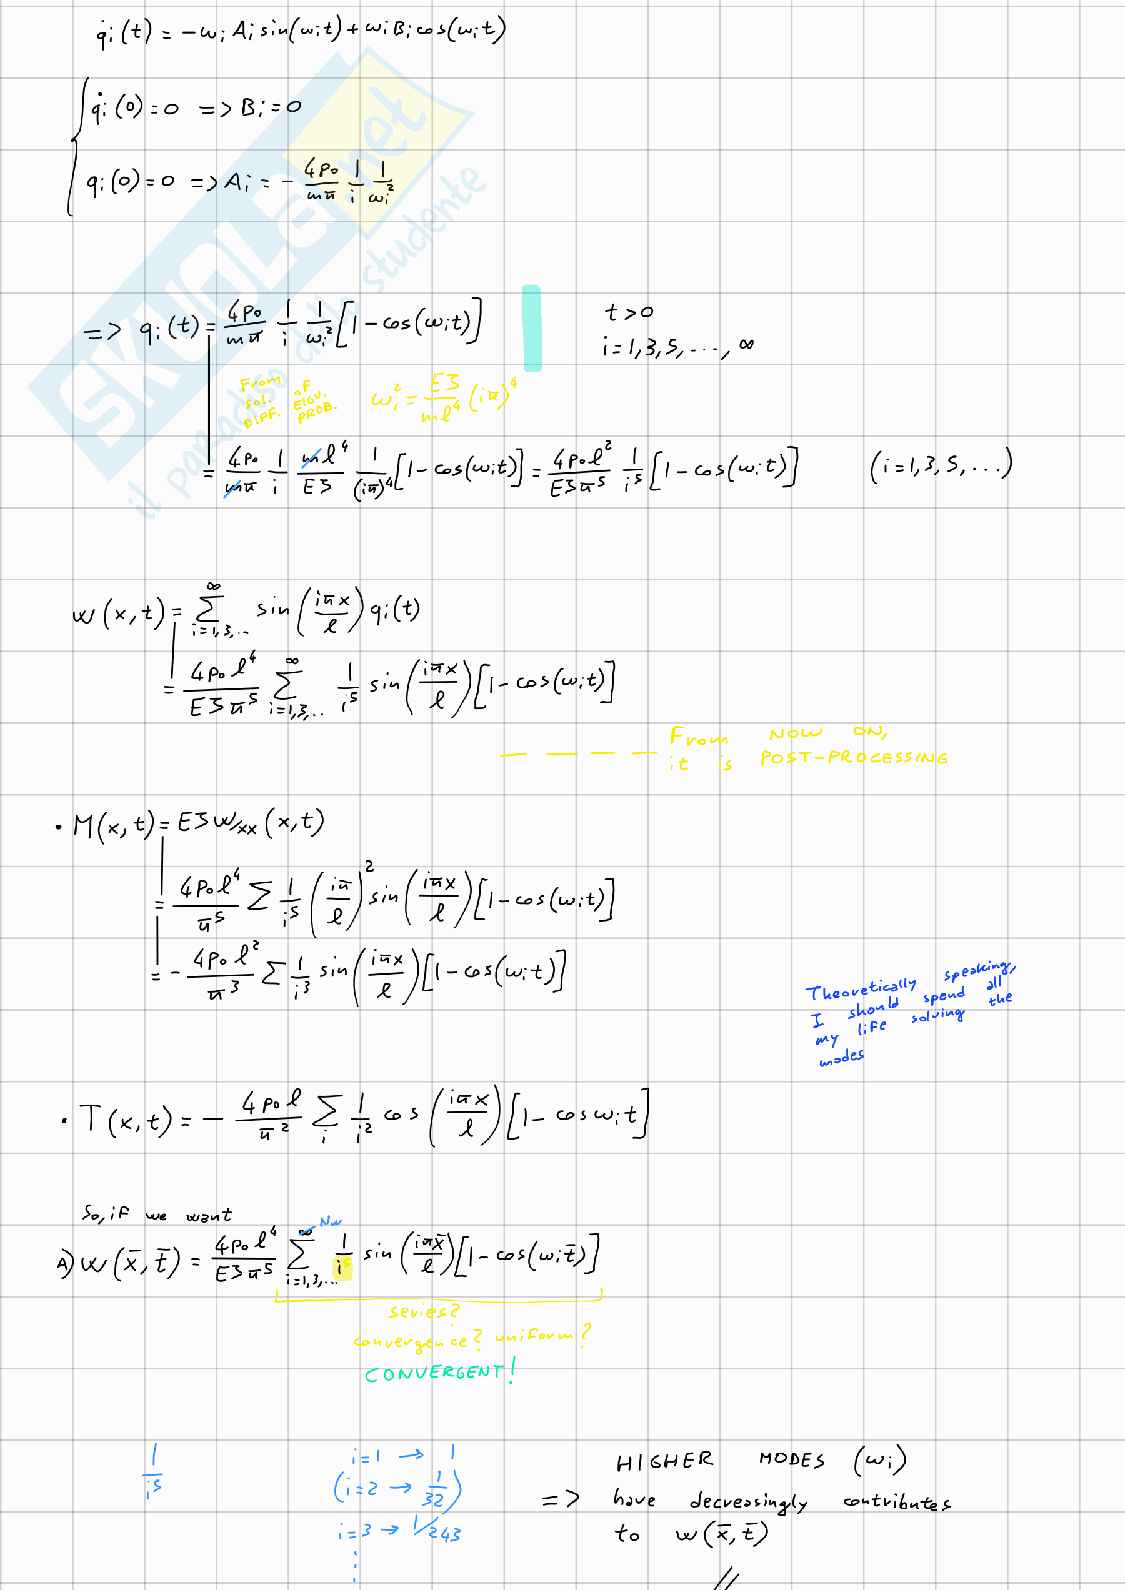 q̇ᵢ(t) = -ωᵢ Aᵢ sin(ωᵢt) + ωᵢ Bᵢ cos(ωᵢt)
q̇ᵢ(0) = 0 => Bᵢ = 0
qᵢ(0) = 0 => Aᵢ = - 4p₀/mπ 1/i 1/ωᵢ²
=> qᵢ(t) = 4p₀/mπ 1/i 1/ωᵢ² [1 - cos(ωᵢt)]
t > 0
i = 1, 3, 5, ..., ∞
From sol. of DIFF. EIGV. PROB.
ωᵢ² = EJ/ml⁴ (iπ)⁴
= 4p₀/mπ 1/i ml⁴/EJ 1/(iπ)⁴ [1 - cos(ωᵢt)] = 4p₀l²/EJπ⁵ 1/i⁵ [1 - cos(ωᵢt)] (i = 1, 3, 5, ...)
w(x,t) = ∑ i=1,3,.. ∞ sin(iπx/l) qᵢ(t)
= 4p₀l⁴/EJπ⁵ ∑ i=1,3,.. ∞ 1/i⁵ sin(iπx/l) [1 - cos(ωᵢt)]
From NOW ON,
it is POST-PROCESSING
• M(x,t) = EJ w/xx (x,t)
= 4p₀l⁴/π⁵ ∑ 1/i⁵ (iπ/l)² sin(iπx/l) [1 - cos(ωᵢt)]
= - 4p₀l²/π³ ∑ 1/i³ sin(iπx/l) [1 - cos(ωᵢt)]
Theoretically speaking,
I should spend all
my life solving the
modes
• T(x,t) = - 4p₀l/π² ∑ i 1/i² cos(iπx/l) [1 - cos ωᵢt]
So, if we want
A) w(x̄,t̄) = 4p₀l⁴/EJπ⁵ ∑ i=1,3,.. ∞ Nw 1/i⁵ sin(iπx̄/l) [1 - cos(ωᵢt̄)]
series?
convergence? uniform?
CONVERGENT!
1/i⁵
i = 1 → 1
(i = 2 → 1/32)
i = 3 → 1/243
=> HIGHER MODES (ωᵢ)
have decreasingly contributes
to w(x̄,t̄)
//
SKUOLA.net
il paradiso dello studente